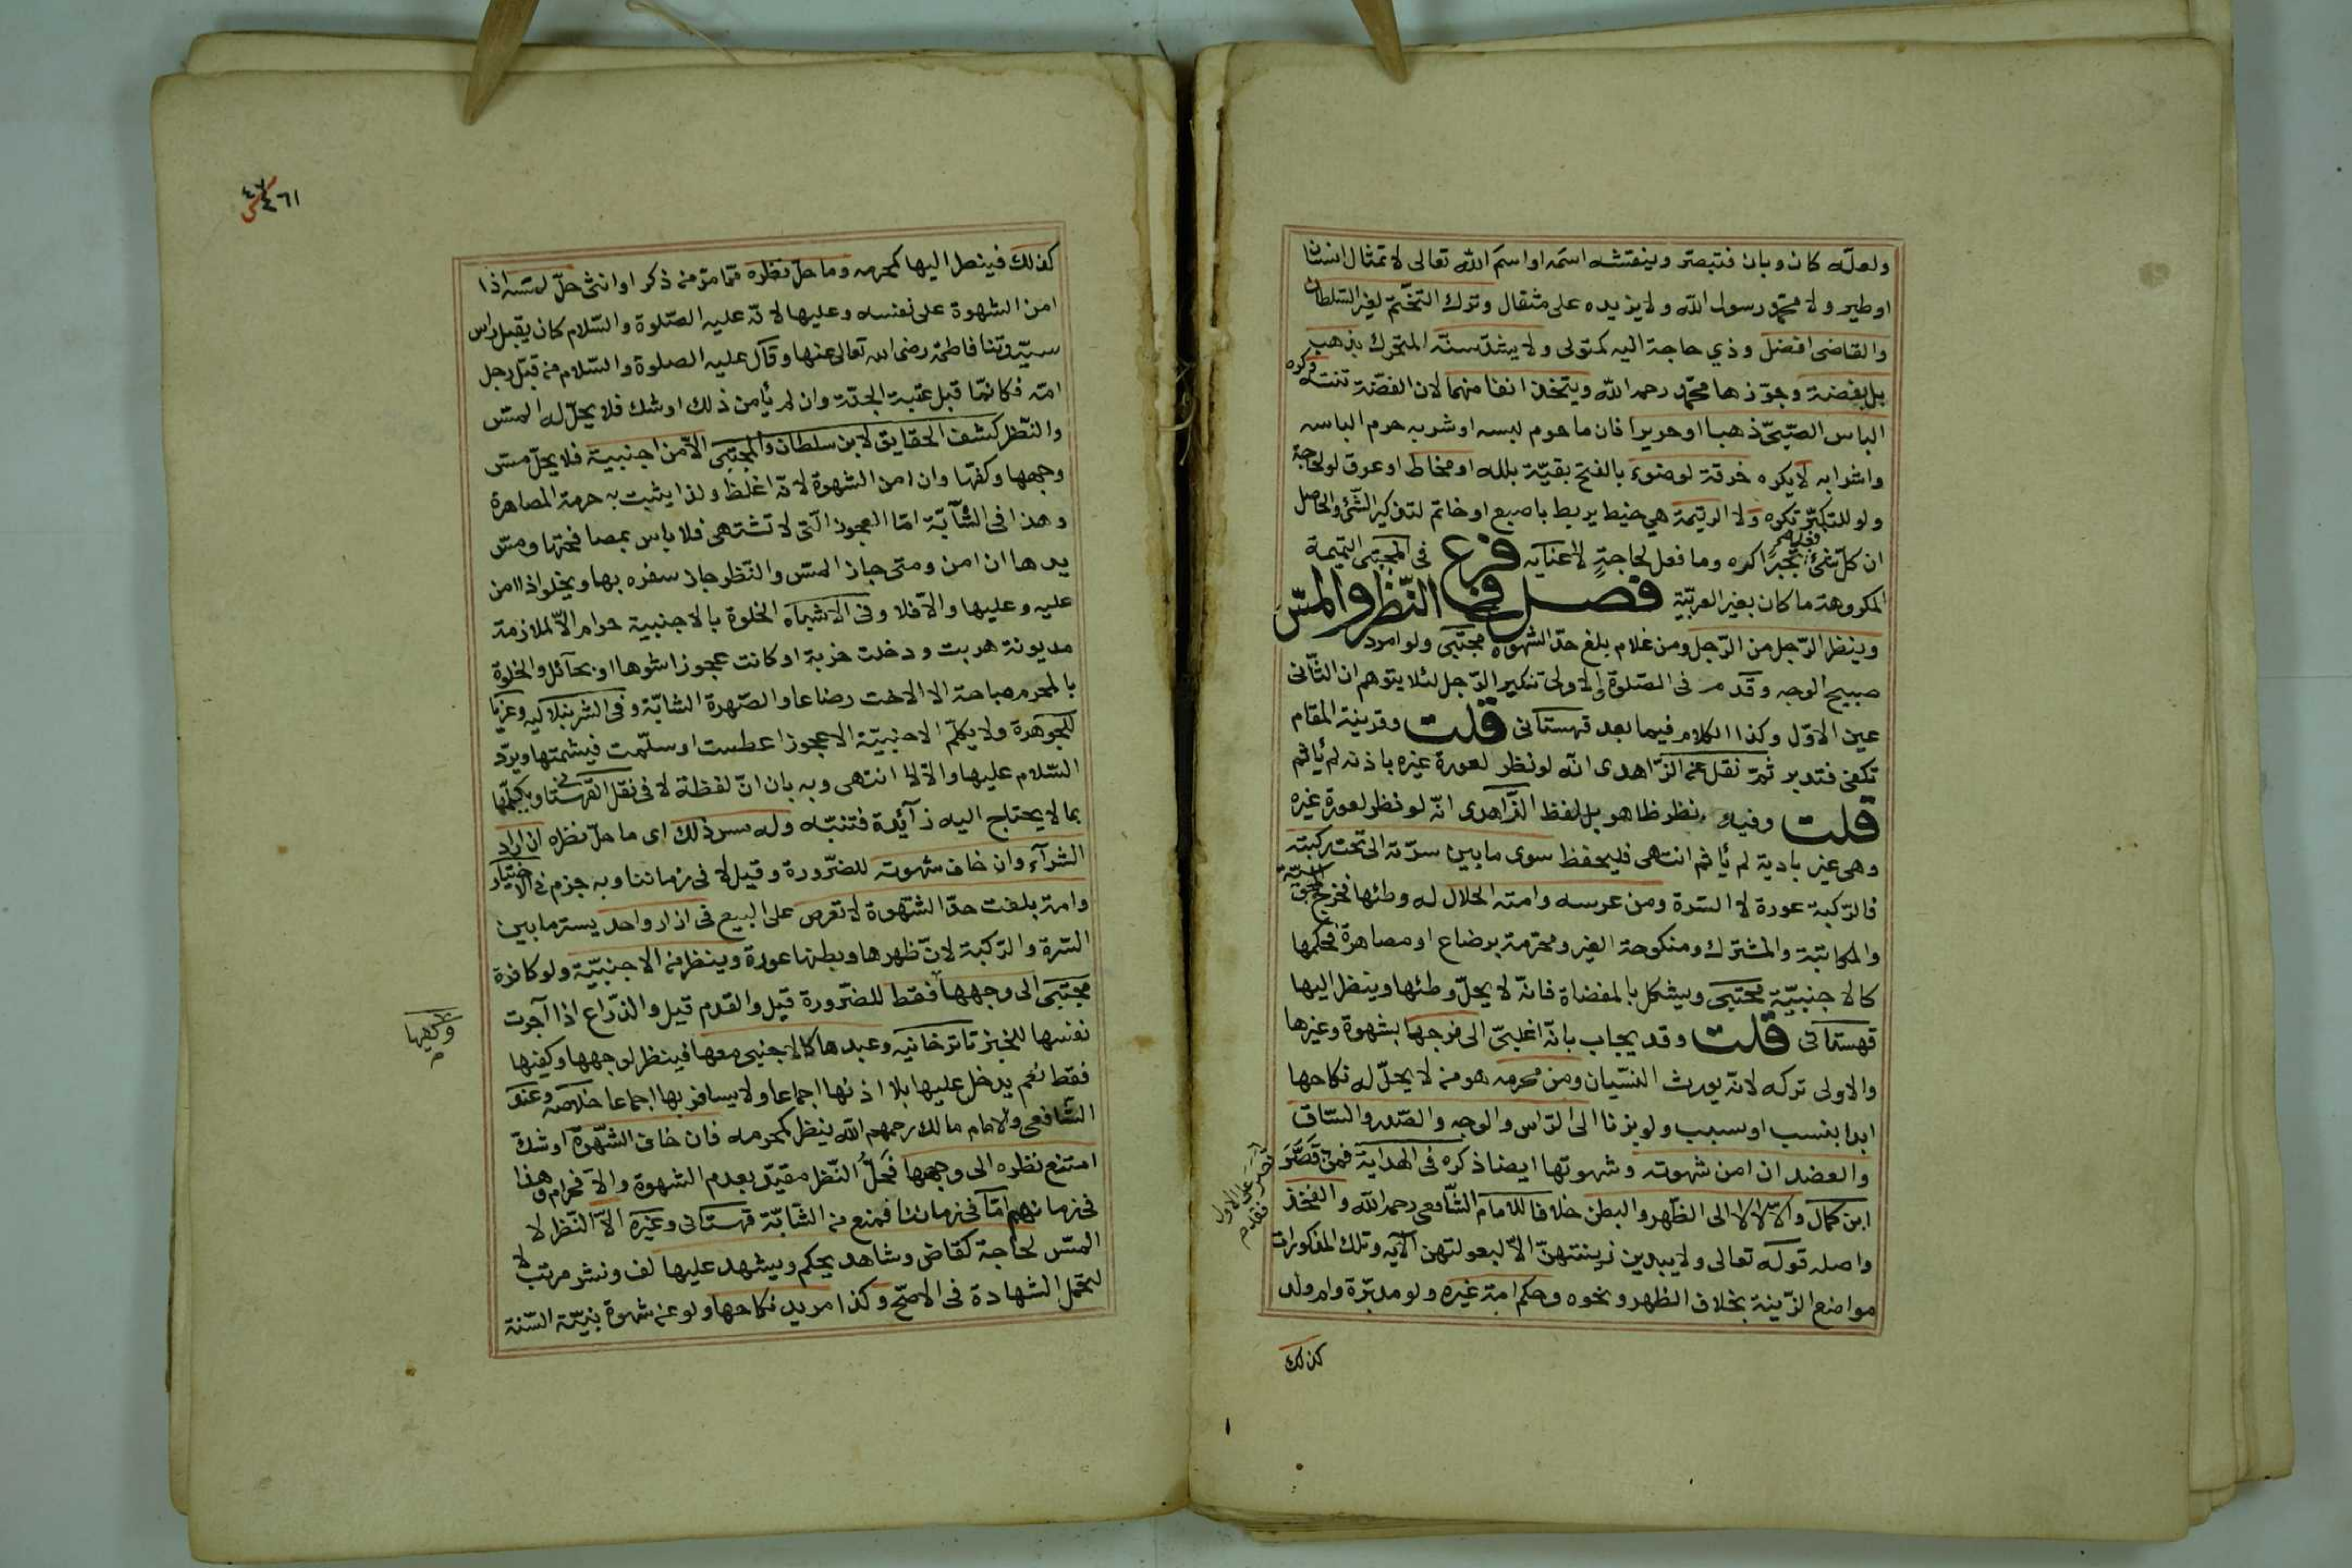 ولعلّه كان وبان فتبصّر وينقشه اسمه او اسم الله تعالى لا تمثال انسان
او طير ولا محمّد رسول الله ولا يزيده على مثقال وترك التختّم لغير السّلطان
والقاضى افضل وذي حاجة اليه كمتولى ولا يشدّ سنّه المتحرك بذهب
بل بفضة وجوّزها محمّد رحمه الله ويتخذ انفا منهما لان الفضّة تنتنه وكره
الباس الصّبيّ ذهبا او حريرا فان ما حرم لبسه او شربه حرم الباسه
واشرابه لا يكره خرقة لوضوء بالفتح بقيّة بلله او مخاط او عرق لو لحاجة
ولو للتكبّر تكره ولا الرتيمة هي خيط يربط باصبع او خاتم لتذكير الشّئ والحاصل
ان كلّ شئ تجبّرا كره وما فعل لحاجةٍ لا عنايه فرع فى المجتبى التميمة
المكروهة ما كان بغير العربيّة فصل فى النّظر والمسّ
وينظر الرّجل من الرّجل ومن غلام بلغ حدّ الشهوة مجتبى ولو امرد
صبيح الوجه وقد مر فى الصّلوة والاولى تنكير الرّجل لئلا يتوهم ان الثّانى
عين الاوّل وكذا الكلام فيما بعد قهستانى قلت وقرينة المقام
تكفى فتدبر ثمّ نقل عن الزّاهدى انّه لو نظر لعورة غيره باذنه لم يأثم
قلت وفيه نظر ظاهر بل لفظ الزّاهدى انّه لو نظر لعورة غيره
وهى غير بادية لم يأثم انتهى فليحفظ سوى ما بين سرّته الى تحت ركبته
فالرّكبة عورة لا السّرة ومن عرسه وامته الحلال له وطئها فخرج المجوسيّة
والمكاتبة والمشترك ومنكوحة الغير ومحرّمة برضاع او مصاهرة فحكمها
كالاجنبيّة مجتبى ويشكل بالمفضاة فانّه لا يحلّ وطئها وينظر اليها
قهستانى قلت وقد يجاب بانّه اغلبىّ الى فرجها بشهوة وغيرها
والاولى تركه لانّه يورث النسّيان ومن محرمه هو من لا يحلّ له نكاحها
ابدا بنسب او سبب ولو بزنا الى الرّاس والوجه والصّدر والسّاق
والعضد ان امن شهوته وشهوتها ايضا ذكره فى الهداية فمن قصّر
على الاول فقد قصّر
ابن كمال والّا لا لا الى الظّهر والبطن خلافا للامام الشّافعى رحمه الله والفخذ
واصله قوله تعالى ولا يبدين زينتهنّ الّا لبعولتهن الآيه وتلك المذكورات
مواضع الزّينة بخلاف الظهر ونحوه وحكم امة غيره ولو مدبّرة وام ولد
كذلك
٤٦١
كذلك فينظر اليها كمحرمه وما حلّ نظره ممّا مرّ من ذكر او انثى حلّ لمسه اذا
امن الشهوة على نفسه وعليها لانّه عليه الصّلوة والسّلام كان يقبل راس
سيّدتنا فاطمة رضى الله تعالى عنها وقال عليه الصلوة والسّلام من قبّل رجل
امّه فكانّما قبل عتبة الجنّة وان لم يأمن ذلك او شك فلا يحلّ له المسّ
والنّظر كشف الحقايق لابن سلطان والمجتبى الّا من اجنبية فلا يحلّ مسّ
وجهها وكفّها وان امن الشهوة لانّه اغلظ ولذا يثبت به حرمة المصاهرة
وهذا فى الشّابّة امّا العجوز الّتى لا تشتهى فلا باس بمصافحتها ومسّ
يدها ان امن ومتى جاز المسّ والنّظر جاز سفره بها ويخلو اذا امن
عليه وعليها والّا فلا وفى الاشباه الخلوة بالاجنبية حرام الّا لملازمة
مديونة هربت ودخلت خربة او كانت عجوزا شوها او بحآئل والخلوة
بالمحرم مباحة الا الاخت رضاعا والصّهرة الشابّة وفى الشرنبلاليه وعزيا
للجوهرة ولا يكلّم الاجنبيّة الا عجوزا عطست او سلّمت فيشمتها ويردّ
السّلام عليها والّا لا انتهى وبه بان انّ لفظة لا فى نقل القهستانى ويكلّمها
بما لا يحتاج اليه زآئدة فتنبّه وله مس ذلك اى ما حلّ نظره ان اراد
الشرآء وان خاف شهوته للضّرورة وقيل لا فى زماننا وبه جزم فى الاختيار
وامة بلغت حدّ الشّهوة لا تعرض على البيع فى ازار واحد يستر ما بين
السّرة والرّكبة لانّ ظهرها وبطنها عورة وينظر من الاجنبيّة ولو كافرة
مجتبى الى وجهها فقط للضّرورة قيل والقدم قيل والذّراع اذا آجرت
وكفيها
نفسها للخبز تاترخانيه وعبدها كالاجنبى معها فينظر لوجهها وكفيها
فقط نعم يدخل عليها بلا اذنها اجماعا ولا يسافر بها اجماعا خلاصه وعند
الشّافعى والامام مالك رحمهم الله ينظر كمحرمه فان خاف الشّهوة او شكّ
امتنع نظره الى وجهها فحلّ النّظر مقيّد بعدم الشهوة والّا فحرام وهذا
فى زمانهم امّا فى زماننا فمنع من الشّابّة قهستانى وغيره الّا النّظر لا
المسّ لحاجة كقاض وشاهد يحكم ويشهد عليها لف ونشر مرتب لا
لتحمّل الشهادة فى الاصحّ وكذا مريد نكاحها ولو عن شهوة بنيّة السّنة